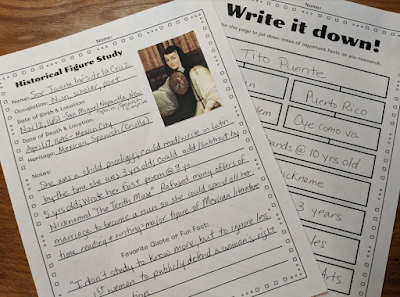 Name:
Historical Figure Study
Name: Sor Juana Inés de la Cruz
Occupation: Nun, scholar, poet
Date of Birth & Location:
Nov 12, San Miguel Nepantla,
Date of Death & Location:
April 17, 1695 - Mexico City
Heritage: Mexican, Spanish (Criolla)
Notes:
She was a child prodigy; could read/write in Latin
by the time she was 3 yrs old; could add/subtract by
5 yrs old; wrote her first poem @ 8 yo
Nicknamed "The Tenth Muse" Refused many offers of
marriage to become a nun so she could spend all her
time reading & writing - major figure of Mexican literature
Favorite Quote or Fun Fact:
"I don't study to know more, but to ignore less."
1st woman to publicly defend a woman's right
Name:
Write it down!
this page to jot down notes of important facts as you research.
Tito Puente
Puerto Rico
Oye como va
@ 10 yrs old
nickname
3 years
Arts